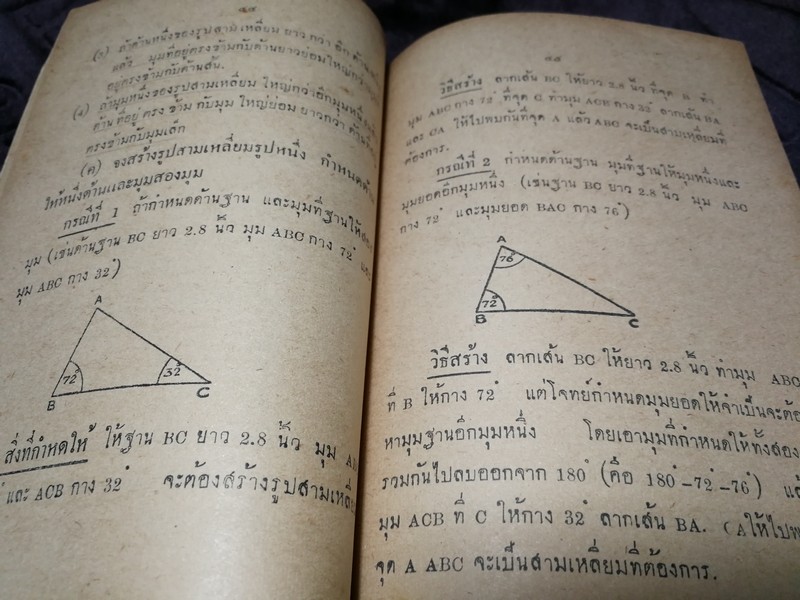 ๔๔
(๓) ถ้าด้านหนึ่งของรูปสามเหลี่ยม ยาว กว่า อีก ด้าน
มุมที่อยู่ตรงข้ามกับด้านยาวย่อมใหญ่กว่า
อยู่ตรงข้ามกับด้านสั้น.
(๔) ถ้ามุมหนึ่งของรูปสามเหลี่ยม ใหญ่กว่าอีกมุมหนึ่ง
ด้าน ที่อยู่ ตรง ข้าม กับมุม ใหญ่ย่อม ยาวกว่า
ตรงข้ามกับมุมเล็ก
(ค) จงสร้างรูปสามเหลี่ยมรูปหนึ่ง กำหนด
ให้หนึ่งด้านและมุมสองมุม
กรณีที่ 1 ถ้ากำหนดด้านฐาน และมุมที่ฐานให้
มุม (เช่นด้านฐาน BC ยาว 2.8 นิ้ว มุม ABC กาง 72°
มุม ABC กาง 32°)
A
72°
32°
B
C
สิ่งที่กำหนดให้ ให้ฐาน BC ยาว 2.8 นิ้ว มุม
และ ACB กาง 32° จะต้องสร้างรูปสาม
๔๕
วิธีสร้าง ลากเส้น BC ให้ยาว 2.8 นิ้ว ที่จุด B ทำ
มุม ABC กาง 72° ที่จุด C ทำมุม ACB กาง 32° ลากเส้น BA
และ CA ให้ไปพบกันที่จุด A แล้ว ABC จะเป็นสามเหลี่ยมที่
ต้องการ.
กรณีที่ 2 กำหนดด้านฐาน มุมที่ฐานให้มุมหนึ่งและ
มุมยอดอีกมุมหนึ่ง (เช่นฐาน BC ยาว 2.8 นิ้ว มุม ABC
กาง 72° และมุมยอด BAC กาง 76°)
A
76°
72°
B
C
วิธีสร้าง ลากเส้น BC ให้ยาว 2.8 นิ้ว ทำมุม ABC
ที่ B ให้กาง 72° แต่โจทย์กำหนดมุมยอดให้จำเป็นจะต้อ
หามุมฐานอีกมุมหนึ่ง โดยเอามุมที่กำหนดให้ทั้งสอง
รวมกันไปลบออกจาก 180° (คือ 180°-72°-76°)
มุม ACB ที่ C ให้กาง 32° ลากเส้น BA. CAให้ไปพ
จุด A ABC จะเป็นสามเหลี่ยมที่ต้องการ.